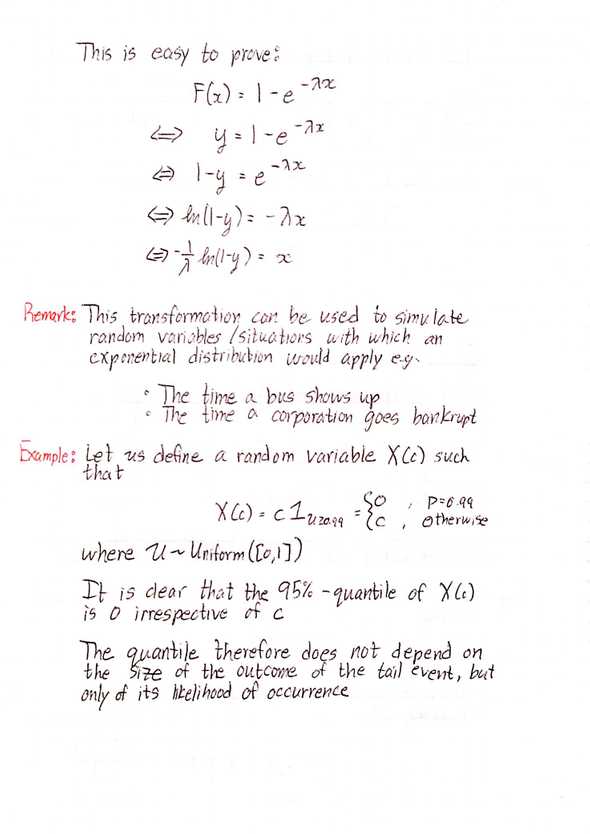 This is easy to prove:
F(x) = 1 - e^-λx
⟺ y = 1 - e^-λx
⟺ 1-y = e^-λx
⟺ ln(1-y) = -λx
⟺ -1/λ ln(1-y) = x
Remark: This transformation can be used to simulate
random variables / situations with which an
exponential distribution would apply e.g.
• The time a bus shows up
• The time a corporation goes bankrupt
Example: Let us define a random variable X(c) such
that
X(c) = c 1_{U≥0.99} = { 0 , P=0.99
{ c , otherwise
where U ~ Uniform([0,1])
It is clear that the 95%-quantile of X(c)
is 0 irrespective of c
The quantile therefore does not depend on
the size of the outcome of the tail event, but
only of its likelihood of occurrence